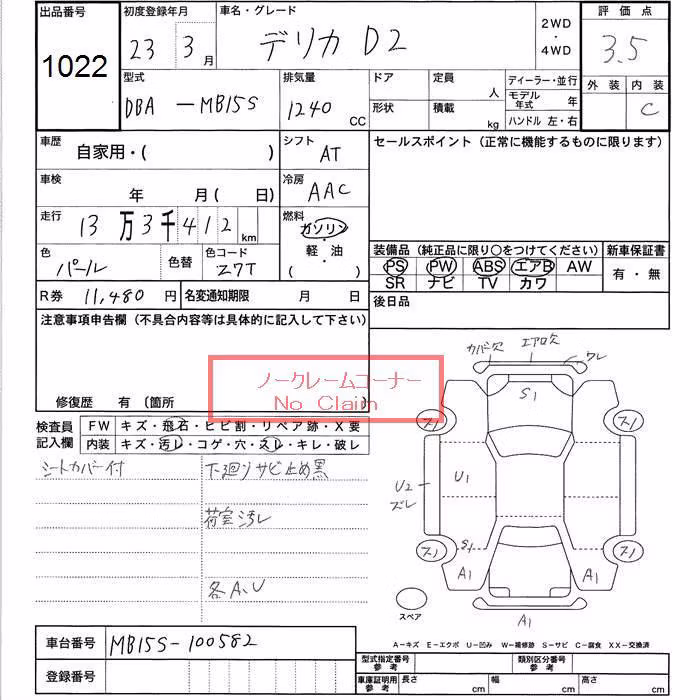 出品番号 初度登録年月 車名・グレード 2WD・4WD 評価点
1022 23年 3月 デリカ D2 3.5
型式 排気量 ドア 定員 人 ディーラー・並行 外装 内装
DBA -MB15S 1240 CC 形状 積載 kg モデル年式 年 C
ハンドル 左・右
車歴 自家用・( ) シフト AT セールスポイント(正常に機能するものに限ります)
車検 年 月( 日) 冷房 AAC
走行 13万3千412 km 燃料 ガソリン・軽油 ( )
色 パール 色替 色コード Z7T
装備品(純正品に限り○をつけてください) 新車保証書
PS PW ABS エアB AW 有・無
SR ナビ TV カワ
R券 11,480円 名変通知期限 月 日 後日品
注意事項申告欄(不具合内容等は具体的に記入して下さい)
ノークレームコーナー
No Claim
修復歴 有(箇所
検査員記入欄 FW キズ・飛石・ヒビ割・リペア跡・X要
内装 キズ・汚レ・コゲ・穴・スレ・キレ・破レ
シートカバー付 下廻りサビ止め黒
荷室汚レ
各A、U
カバー欠 エアロ欠 ワレ
S1
スリ スリ
U2 ズレ U1
スリ S1 スリ
A1 A1
スペア A1
A-キズ E-エクボ U-凹み W-補修跡 S-サビ C-腐食 XX-交換済
車台番号 MB15S-100582
型式指定番号 参考 類別区分番号 参考
登録番号 車庫証明用 参考 長さ cm 幅 cm 高さ cm